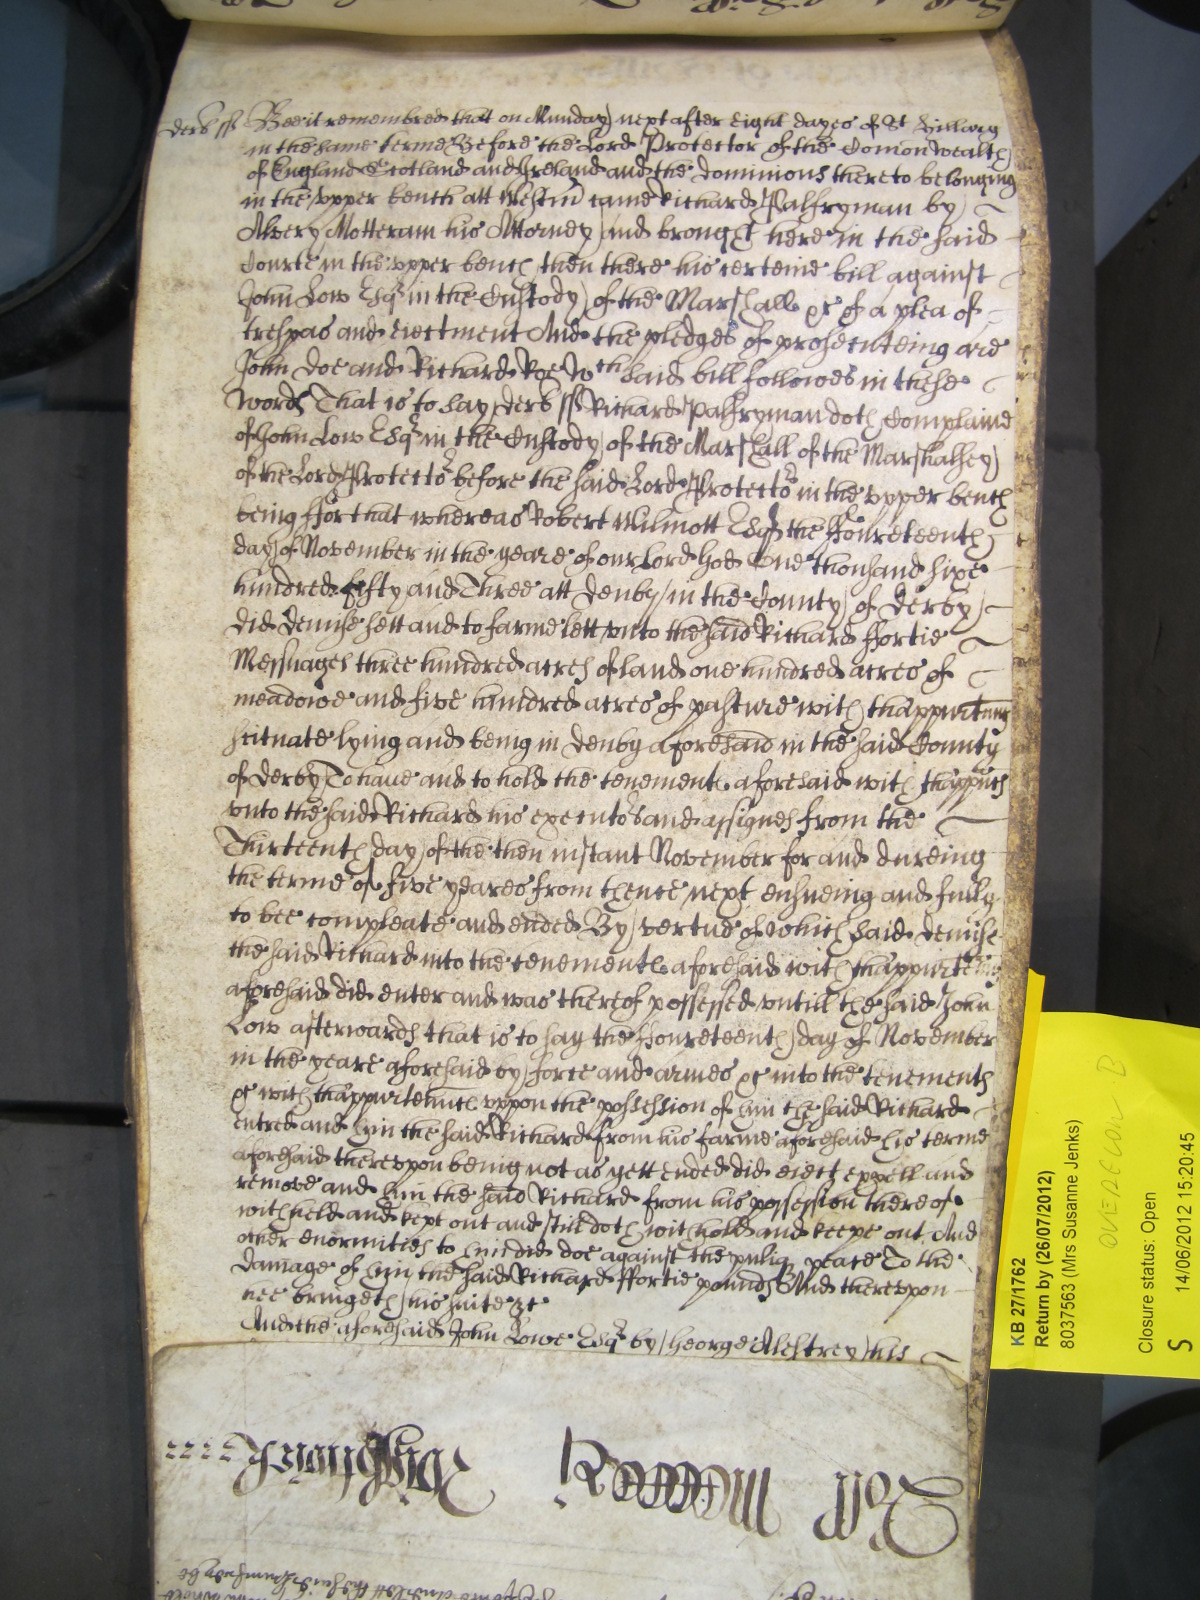 derb ss Bee it remembred that on Munday next after eight dayes of St Hillary
in the same terme Before the Lord Protector of the Comonwealth
of England Scotland and Ireland and the dominions thereto belonging
in the vpper bench att Westm came Richard Palfryman by
Alvery Motteram his Attorney and brought here in the said
Courte in the vpper bench then there his certeine bill against
John Low Esqr in the Custody of the Marshall &c of a plea of
trespas and eiectment And the pledges of prosecuteing are
John Doe and Richard Roe Wch said bill followes in these
words That is to say derb ss Richard Palfryman doth Complaine
of John Low Esqr in the Custody of the Marshall of the Marshalsey
of the Lord Protector before the said Lord Protector in the vpper bench
being ffor that whereas Robert Wilmott Esqr the ffoureteenth
day of November in the yeare of our Lord god One thousand sixe
hundred fifty and Three att denby in the County of derby
did demise sett and to farme lett vnto the said Richard ffortie
Messuages three hundred acres of land one hundred acres of
meadowe and five hundred acres of pasture with thappurtenn
scituate lying and being in denby aforesaid in the said County
of derby To haue and to hold the tenements aforesaid with thappurts
vnto the said Richard his executors and assignes from the
Thirteenth day of the then instant November for and dureing
the terme of five yeares from thence next ensueing and fully
to bee compleate and ended By vertue of which said demise
the said Richard into the tenements aforesaid with thappurten
aforesaid did enter and was thereof possessed vntill the said John
Low afterwards that is to say the ffoureteenth day of November
in the yeare aforesaid by force and armes &c into the tenements
&c with thappurtennts vppon the possession of him the said Richard
entred and him the said Richard from his farme aforesaid his terme
aforesaid therevpon being not as yett ended did eiect expell and
remove and him the said Richard from his possession thereof
withheld and kept out and still doth withhold and keepe out And
other enormities to him did doe against the publiq peace To the
damage of him the said Richard ffortie pounds And therevpon
hee bringeth his suite &c
And the aforesaid John Lowe Esqr by George Alestrey his
Roll
KB 27/1762
Return by (26/07/2012)
8037563 (Mrs Susanne Jenks)
OVERSEWN B
Closure status: Open
S 14/06/2012 15:20:45